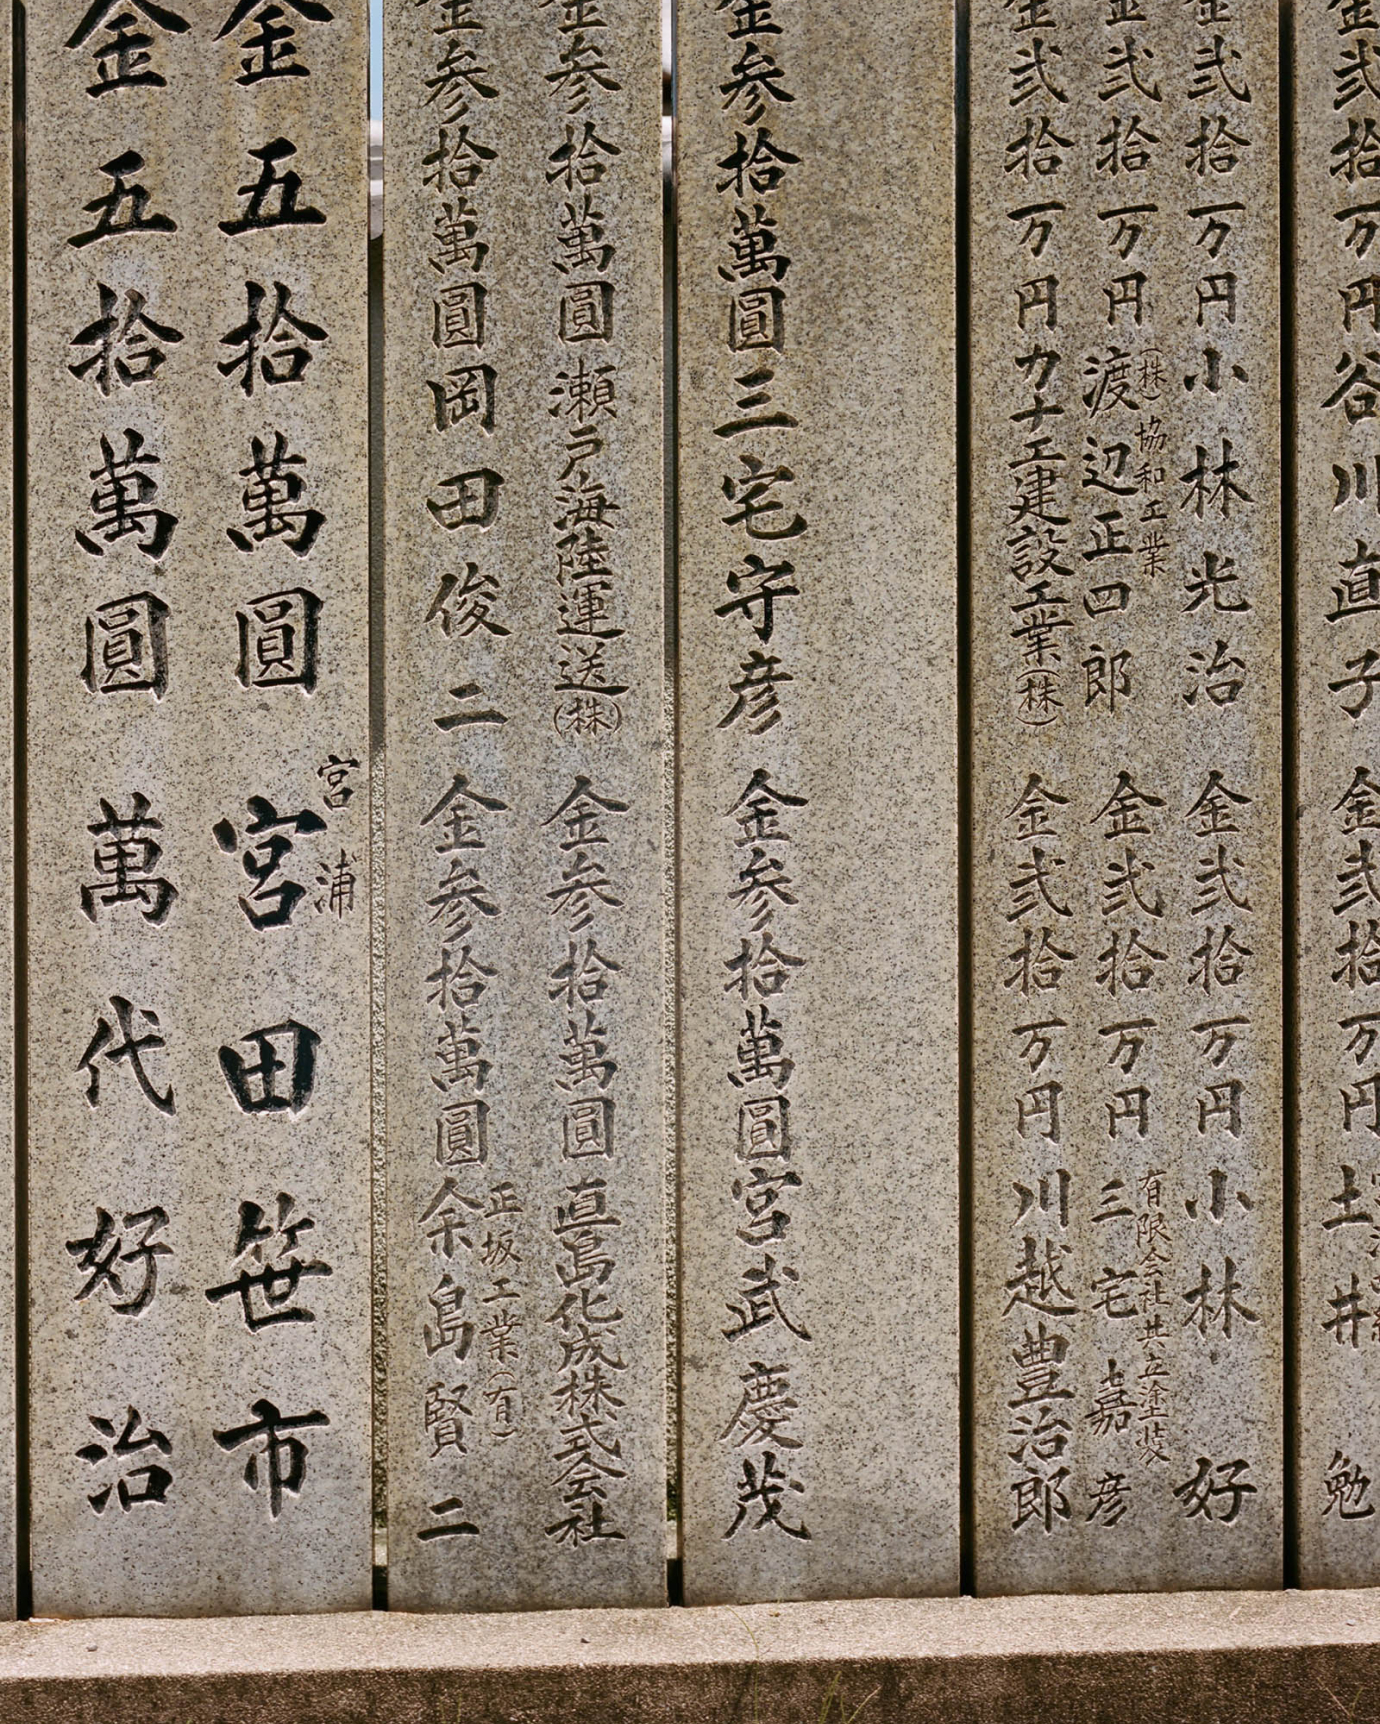 金弐拾万円谷川直子
金弐拾万円土井 勉
金弐拾万円小林光治
金弐拾万円小林 好
金弐拾万円(株)協和工業
渡辺正四郎
金弐拾万円有限会社共立塗装
三宅嘉彦
金弐拾万円カナエ建設工業(株)
金弐拾万円川越豊治郎
金参拾萬圓三宅守彦
金参拾萬圓宮武慶茂
金参拾萬圓瀬戸海陸運送(株)
金参拾萬圓直島化成株式会社
金参拾萬圓岡田俊二
金参拾萬圓正坂工業(有)
余島賢二
金五拾萬圓宮浦
宮田笹市
金五拾萬圓萬代好治